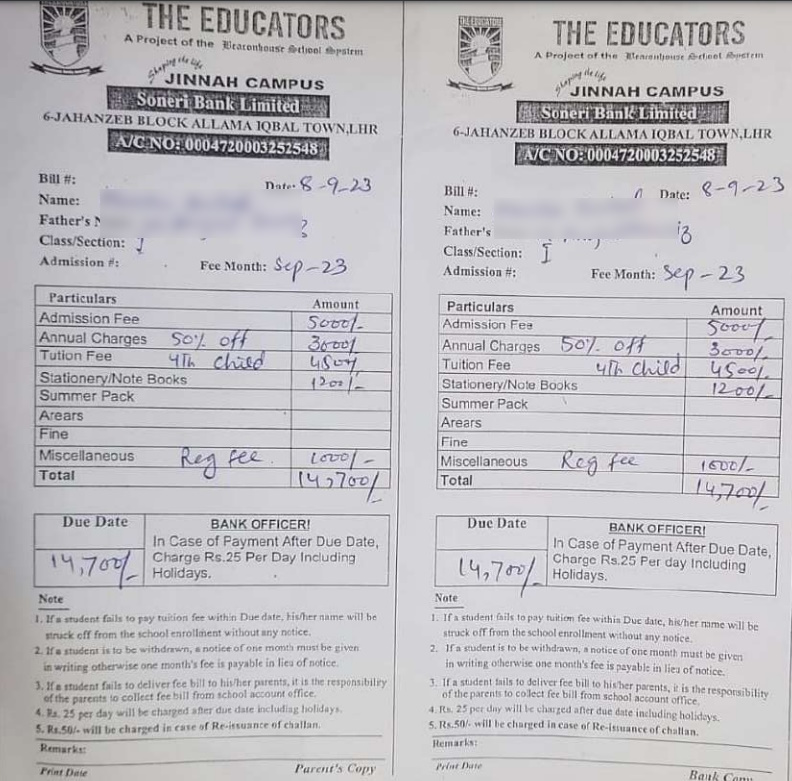 THE EDUCATORS
A Project of the Beaconhouse School System
Shaping the life
JINNAH CAMPUS
Soneri Bank Limited
6-JAHANZEB BLOCK ALLAMA IQBAL TOWN,LHR
A/C NO: 0004720003252548
Bill #:
Date: 8-9-23
Name:
Father's N
Class/Section: I
Admission #: Fee Month: Sep-23
Particulars Amount
Admission Fee 5000/-
Annual Charges 50% off 3000/-
Tution Fee 4th child 4500/-
Stationery/Note Books 1200/-
Summer Pack
Arears
Fine
Miscellaneous Reg fee 1000/-
Total 14,700/-
Due Date
14,700/-
BANK OFFICER!
In Case of Payment After Due Date,
Charge Rs.25 Per Day Including
Holidays.
Note
1. If a student fails to pay tuition fee within Due date, his/her name will be
struck off from the school enrollment without any notice.
2. If a student is to be withdrawn, a notice of one month must be given
in writing otherwise one month's fee is payable in lieu of notice.
3. If a student fails to deliver fee bill to his/her parents, it is the responsibility
of the parents to collect fee bill from school account office.
4. Rs. 25 per day will be charged after due date including holidays.
5. Rs.50/- will be charged in case of Re-issuance of challan.
Remarks:
Print Date Parent's Copy
THE EDUCATORS
A Project of the Beaconhouse School System
Shaping the life
JINNAH CAMPUS
Soneri Bank Limited
6-JAHANZEB BLOCK ALLAMA IQBAL TOWN,LHR
A/C NO: 0004720003252548
Bill #: Date: 8-9-23
Name:
Father's
Class/Section: I
Admission #: Fee Month: Sep-23
Particulars Amount
Admission Fee 5000/-
Annual Charges 50% off 3000/-
Tuition Fee 4th child 4500/-
Stationery/Note Books 1200/-
Summer Pack
Arears
Fine
Miscellaneous Reg fee 1000/-
Total 14,700/-
Due Date
14,700/-
BANK OFFICER!
In Case of Payment After Due Date,
Charge Rs.25 Per day Including
Holidays.
Note
1. If a student fails to pay tuition fee within Due date, his/her name will be
struck off from the school enrollment without any notice.
2. If a student is to be withdrawn, a notice of one month must be given
in writing otherwise one month's fee is payable in lieu of notice.
3. If a student fails to deliver fee bill to his/her parents, it is the responsibility
of the parents to collect fee bill from school account office.
4. Rs. 25 per day will be charged after due date including holidays.
5. Rs.50/- will be charged in case of Re-issuance of challan.
Remarks:
Print Date Bank Copy